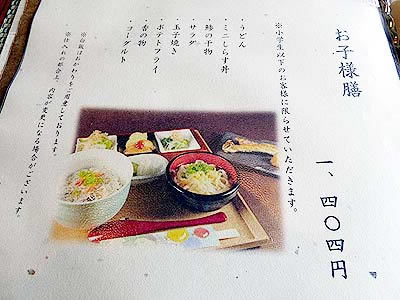 お子様膳
一、四〇四円
※小学生以下のお客様に限らせていただきます。
・うどん
・ミニしらす丼
・鯵の干物
・サラダ
・玉子焼き
・ポテトフライ
・香の物
・ヨーグルト
※白飯はおかわりもご用意しております。
※仕入れの都合上、内容が変更になる場合がございます。